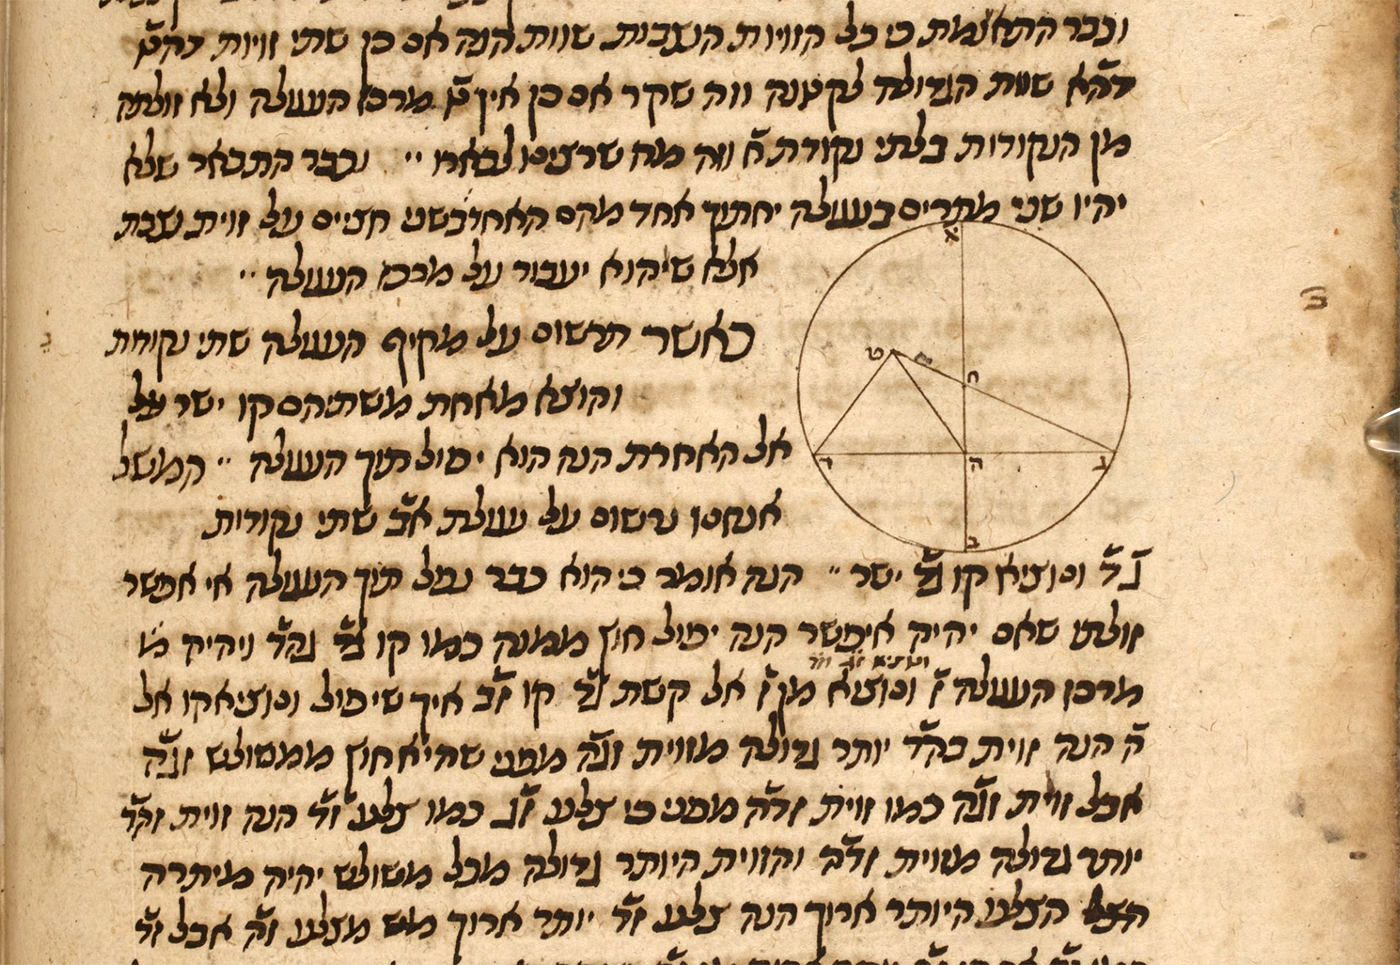 וכבר התאמת כי כל הזויות הנצבות שוות הנה אם כן שתי זויות
שוות הגדולה לקטנה וזה שקר אם כן אין מרכז העגולה ולא זולתה
מן הנקודות בלתי נקודת ח וזה מה שרצינו לבארו ׳׳ וכבר התבאר שלא
יהיו שני מתרים בעגולה יחתוך אחד מהם האחר בשני חציים על זוית נצבת
אלא שיהוא יעבור על מרכז העגולה ׳׳
כאשר תרשום על מקיף העגולה שתי נקודות
והוצא מאחת משתיהם קו ישר על
אל האחרת הנה הוא יפול תוך העגולה ׳׳ המשל
אנחנו נרשום על עגולת אב שתי נקודות
גד ונוציא קו גד ישר ׳׳ הנה אומר כי הוא כבר נפל תוך העגולה אי אפשר
זולתו שאם יהיה איפשר הנה יפול חוץ ממנה כמו קו גד גהד ויהיה
מרכז העגולה ז ונוציא מן ז אל קשת גד קו זב איך שיפול ונוציא קו אל
ה הנה זוית בהד יותר גדולה מזוית זגה מפני שהיא חוץ ממשולש זגה
אבל זוית זגה כמו זוית זדה מפני כי צלע זג כמו צלע זד הנה זוית זהד
יותר גדולה מזוית זדה והזוית היותר גדולה מכל משולש יהיה מיתרה
הצלע היותר ארוך הנה צלע זד יותר ארוך מצלע זה אבל זד
א
ט
ח
ד
ה
ג
ב